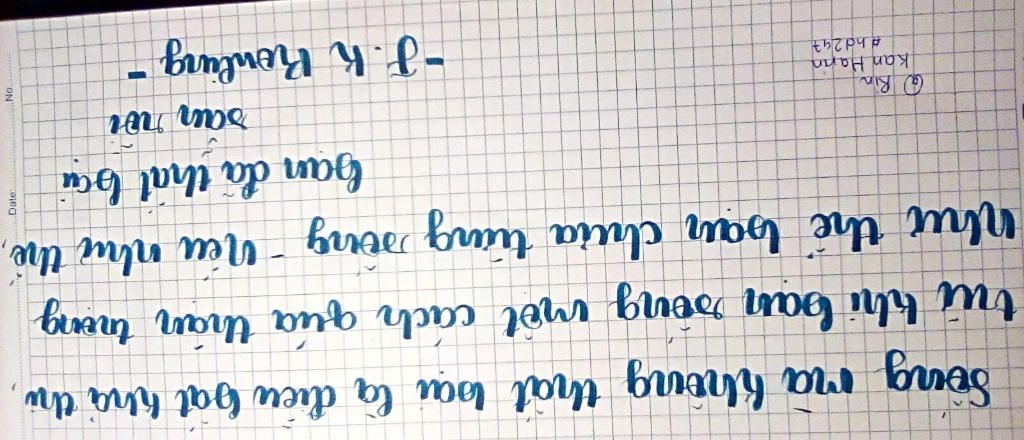 Sống mà không thất bại là điều bất khả thi,
trừ khi bạn sống một cách quá thận trọng
như thể bạn chưa từng sống - nếu như thế,
bạn đã thất bại
sẵn rồi
- J. K Rowling -
@ Rin
Kan
#hd247
Date:
No.